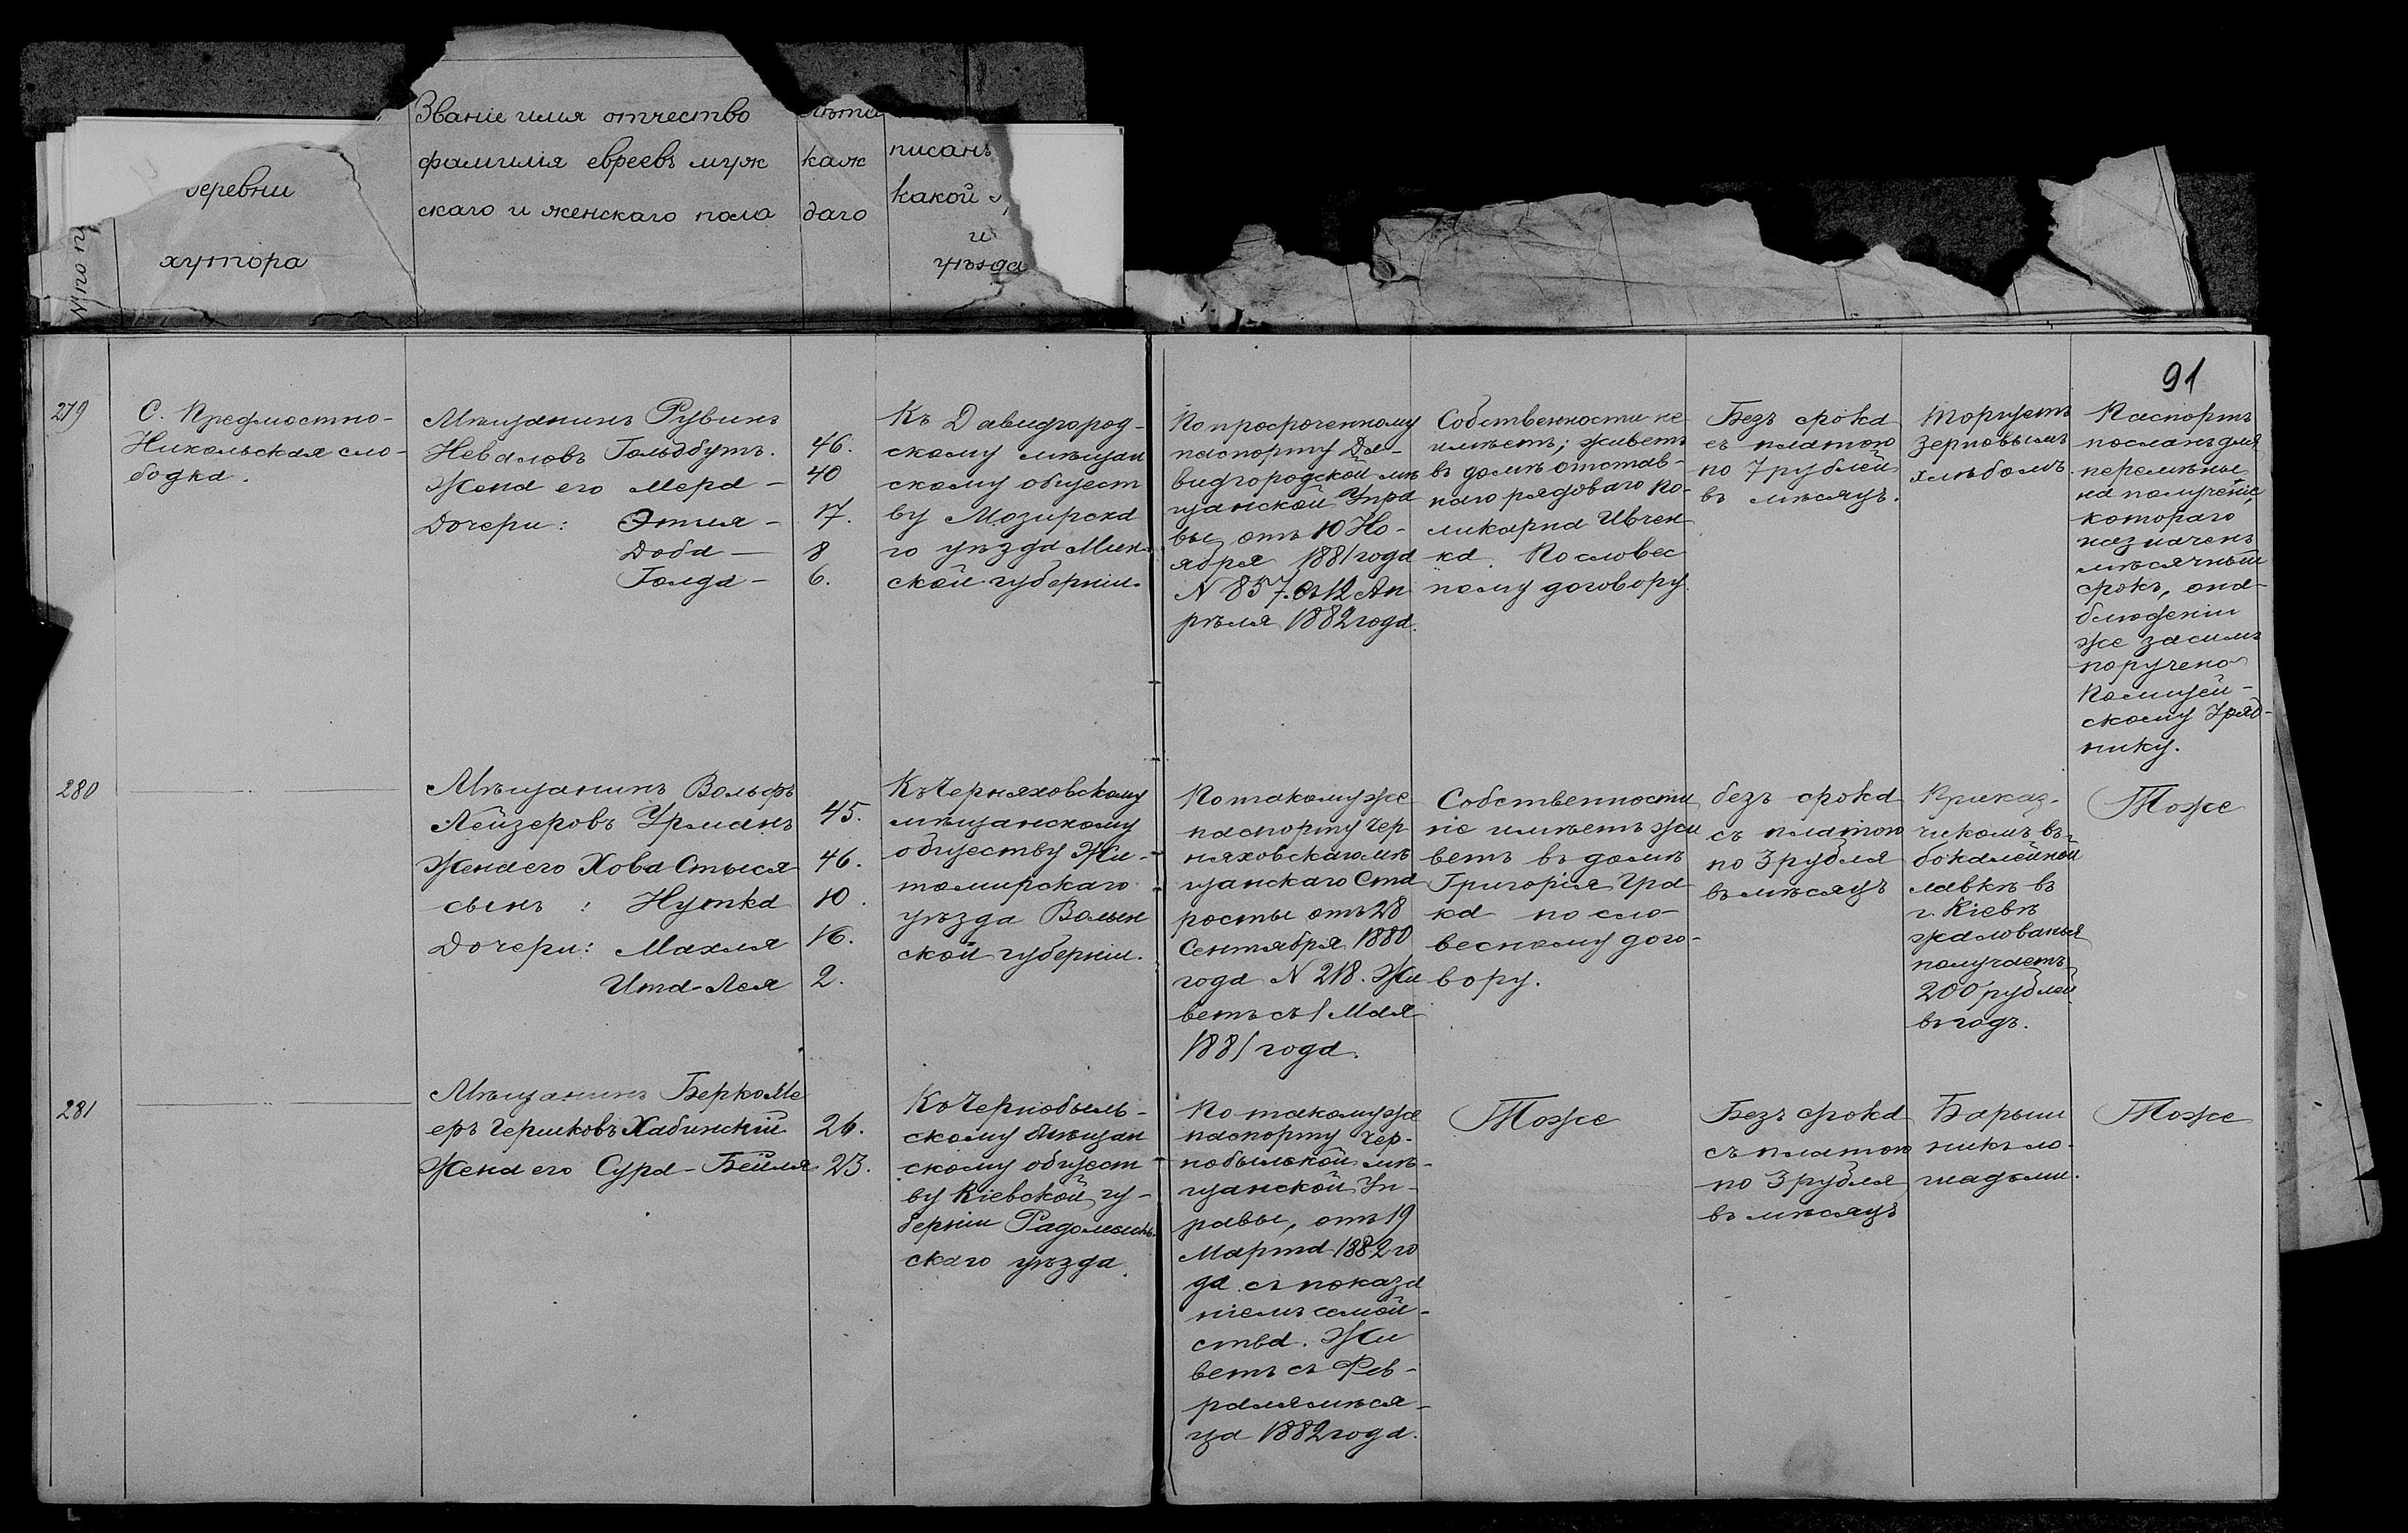 Званіе имя отчество
фамилія евреевъ муж
скаго и женскаго пола
лѣта
каж
даго
писанъ
какой
и
уѣзда
деревни
хутора
№ по п
91
279
С. Предмостно-
Никольская сло-
бодка.
Мѣщанинъ Рувинъ
Невалювъ Гольдбутъ. 46.
Жена его Мера - 40
Дочери: Этля - 17.
Доба — 8
Голда - 6.
Къ Давидгород-
скому мѣщан
скому общест
ву Мозирска
го уѣзда Мин-
ской губерніи.
По просроченному
паспорту Да-
видгородской мѣ
щанской Упра
вы, отъ 10 Но-
ября 1881 года
N 857. Съ 12 Ап
рѣля 1882 года.
Собственности не
имѣетъ; живетъ
въ домѣ отстав-
наго рядоваго По-
ликарпа Ивчен
ка. По словес
ному договору.
Безъ срока
съ платою
по 7 рублей
въ мѣсяцъ.
Торгуетъ
зерновымъ
хлѣбомъ.
Паспортъ
посланъ для
перемѣны
на полученіе
котораго
назначенъ
мѣсячный
срокъ, опа-
блюденіи
же за симъ
поручено
Полицей-
скому Уряд-
нику.
280
Мѣщанинъ Вольфъ
Лейзеровъ Урманъ 45.
Жена его Хова Стыся 46.
сынъ : Нутка 10.
Дочери: Махля 16.
Ита-Лея 2.
Къ Черняховскому
мѣщанскому
обществу Жи-
томирскаго
уѣзда Волын
ской губерніи.
По такому же
паспорту Чер
няховскаго мѣ
щанскаго Ста
росты отъ 28
Сентября 1880
года N 218. Жи
ветъ съ 1 Мая
1881 года.
Собственности
не имѣетъ жи
ветъ въ домѣ
Григорія Гра
ка по сло-
весному дого-
вору.
безъ срока
съ платою
по 3 рубля
въ мѣсяцъ
Приказ-
чикомъ въ
бокалейной
лавкѣ въ
г. Кіевѣ
жалованья
получаетъ
200 рублей
въ годъ.
Тоже
281
Мѣщанинъ Берко Ме
еръ Гершковъ Хабинскій 26.
Жена его Сура-Бейля 23.
Къ Чернобыль-
скому мѣщан
скому общест
ву Кіевской гу-
берніи Радомысль-
скаго уѣзда.
По такому же
паспорту Чер-
нобыльской мѣ-
щанской Уп-
равы, отъ 19
Марта 1882 го
да съ показа
ніемъ семей-
ства. Жи
ветъ съ Фев-
раля мѣся-
ца 1882 года.
Тоже
Безъ срока
съ платою
по 3 рубля
въ мѣсяцъ
Барыш
никъ ло-
шадьми.
Тоже